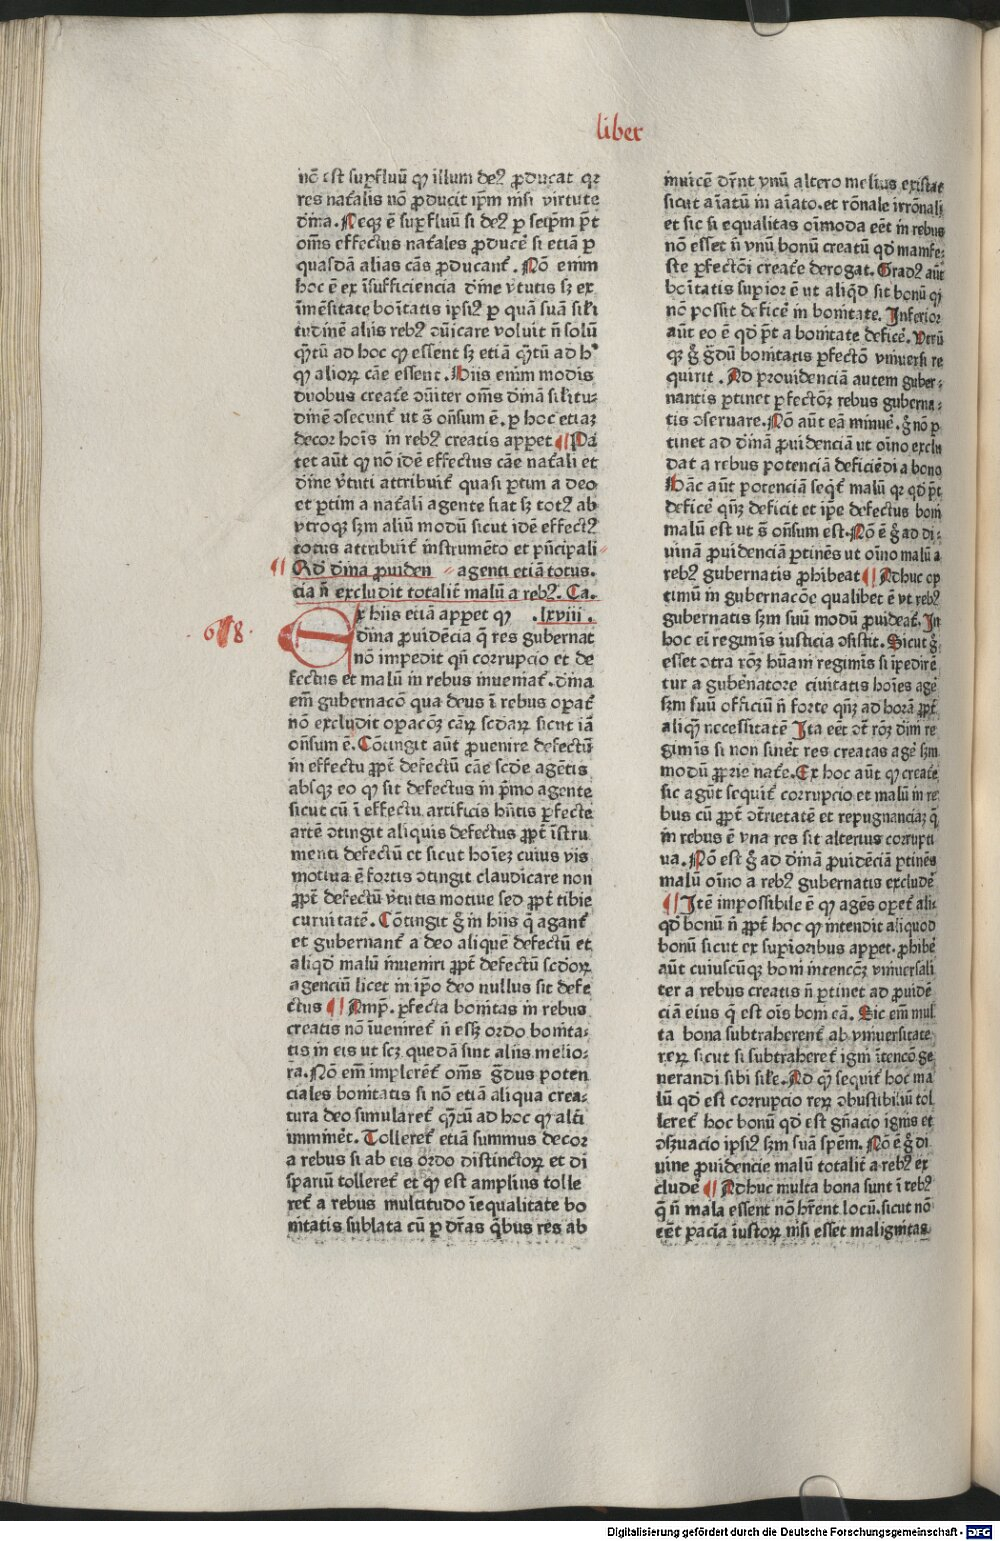 liber
nō est suꝑfluū ꝙ illum deꝰ ꝓducat qꝛ
res nat̄ales nō ꝓducit ip̄m nisi virtute
diīna. Neqꝫ ē suꝑfluū si deꝰ ꝑ seip̄m p̄t
om̄s effectus nat̄ales ꝓducē si etiā ꝑ
quasdā alias cās ꝓducant᷑. Nō enim
hoc ē ex īsufficiencia diīne v̄tutis sꝫ ex
īmēsitate boītatis ipsiꝰ ꝑ quā suā sīli
tudinē aliis rebꝰ ↄūicare voluit n̄ solū
q̄ꝫtū ad hoc ꝙ essent sꝫ etiā q̄ꝫtū ad hͦ
ꝙ alioꝝ cāe essent. Hiis enim modis
duobus creat̄e ↄūiter om̄s diīnā silitu-
dinē ↄsecunt᷑ ut s̄ on̄sum ē. ꝑ hoc etiaꝫ
decor hoīs in rebꝰ creatis apꝑet ¶ Pa
tet aūt ꝙ nō idē effectus cāe nat̄ali et
diīne v̄tuti attribuit᷑ quasi ꝑtim a deo
et ꝑtim a nat̄ali agente fiat sꝫ totꝰ ab
vtroqꝫ sꝫm aliū modū sicut idē effectꝰ
totus attribuit᷑ instrumēto et pn̄cipali
¶ Qd̄ diīna ꝓuiden agenti etiā totus.
cia n̄ excludit totalit᷑ malū a rebꝰ. Ca.
Ex hiis etiā apꝑet ꝙ .lxviii.
.68.
diīna ꝓuidēcia q̄ res gubernat
nō impedit qn̄ corrupcio et de
fectus et malū in rebus inueniat᷑. diīna
em̄ gubernacō qua deus ī rebus oꝑat᷑
nō excludit oꝑacōꝫ cāꝝ scdaꝝ sicut iā
on̄sum ē. Cōtingit aūt ꝓuenire defectū
in effectu ꝓpt̄ defectū cāe scde agētis
absqꝫ eo ꝙ sit defectus in p̄mo agente
sicut cū ī effectu artificis hn̄tis ꝑfecte
artē ↄtingit aliquis defectus ꝓpt̄ īstru
menti defectū et sicut hoīeꝫ cuius vis
motiua ē fortis ↄtingit claudicare non
ꝓpt̄ defectū v̄tutis motiue sed ꝓpt̄ tibie
curuitatē. Cōtingit g̊ in hiis q̄ agant᷑
et gubernant᷑ a deo aliquē defectū et
aliqd̄ malū inueniri ꝓpt̄ defectū scdoꝝ
agenciū licet in ip̄o deo nullus sit defe
ctus ¶ Amp̄. ꝑfecta bonitas in rebus
creatis nō īueniret᷑ n̄ esꝫ ordo bonita-
tis in eis ut scꝫ quedā sint aliis melio-
ra. Nō em̄ implerent᷑ om̄s g̊dus poten
ciales bonitatis si nō etiā aliqua crea-
tura deo simularet᷑ q̄ꝫtū ad hoc ꝙ alt̄i
immineͣt. Tolleret᷑ etiā summus decor
a rebus si ab eis ordo distinctoꝝ et di
spariū tolleret᷑ et ꝙ est amplius tolle
ret᷑ a rebus multitudo īequalitate bo
nitatis sublata cū ꝑ dr̄as q̄bus res ab
inuicē dr̄nt vnū altero melius existat
sicut aīatū in aīato. et rōnale irrōnali
et sic si equalitas oīmoda eēt in rebus
nō esset n̄ vnū bonū creatū qd̄ manife-
ste ꝑfectōi creat̄e derogat. Gradꝰ aūt
boītatis suꝑior ē ut aliqd̄ sit bonū qi
nō possit deficē in bonitate. Inferior
aūt eo ē qd̄ p̄t a bonitate deficē. Vtrū
qꝫ g̊ g̊dū bonitatis ꝑfectō vniuersi re
quirit. Ad prouidenciā autem guber-
nantis ꝑtinet ꝑfectōꝫ rebus guberna-
tis ↄseruare. Nō aūt eā minuē. g̊ nō ꝑ
tinet ad diīnā ꝓuidenciā ut oīno exclu
dat a rebus potenciā deficiēdi a bono
Hāc aūt potenciā seqt᷑ malū qꝛ qd̄ p̄t
deficē qn̄qꝫ deficit et ip̄e defectus boni
malū est ut s̄ on̄sum est. Nō ē g̊ ad di-
uinā ꝓuidenciā ꝑtinēs ut oīno malū a
rebꝰ gubernatis ꝓhibeat ¶ Adhuc op
timū in gubernacōe qualibet ē vt rebꝰ
gubernatis sꝫm suū modū ꝓuideat᷑. In
hoc eī regiminis iusticia ↄsistit. Sicut g̊
esset ↄtra rōꝫ hūani regiminis si īpedirē
tur a gubernatore ciuitatis hoīes agē
sꝫm suū officiū n̄ forte qn̄qꝫ ad horā ꝓpt̄
aliqꝫ necessitatē Ita eēt ↄt̄ rōꝫ diīni re
giminis si non sineret res creatas agē sꝫm
modū ꝓprie nat̄e. Ex hoc aūt ꝙ create
sic agūt sequit᷑ corrupcio et malū in re
bus cū ꝓpt̄ ↄt̄rietatē et repugnanciaꝫ q̄
in rebus ē vna res sit alterius corrupti
ua. Nō est g̊ ad diīnā ꝓuidēciā ꝑtinēs
malū oīno a rebꝰ gubernatis excludē
¶ Itē impossibile ē ꝙ agēs oꝑet᷑ ali-
qd̄ bonū n̄ ꝓpt̄ hoc ꝙ intendit aliquod
bonū sicut ex suꝑioribus apꝑet. ꝓhibē
aūt cuiuscūqꝫ boni intencōꝫ vniuersali
ter a rebus creatis n̄ ꝑtinet ad ꝓuidē
ciā eius q̄ est oīs boni cā. Sic em̄ mul
ta bona subtraherent᷑ ab vniuersitate
reꝝ sicut si subtraheret᷑ igni ītencō ge
nerandi sibi sīle. Ad qꝫ sequit᷑ hoc ma
lū qd̄ est corrupcio reꝝ ↄbustibiliū tol
leret᷑ hoc bonū qd̄ est gn̄acio ignis et
ↄsꝫuacio ipsiꝰ sꝫm suā spēm. Nō ē g̊ di
uine ꝓuidencie malū totalit᷑ a rebꝰ ex
cludē ¶ Adhuc multa bona sunt ī rebꝰ
q̄ n̄ mala essent nō hr̄ent locū. sicut nō
eēt pacīa iustoꝝ nisi esset malignitas
Digitalisierung gefördert durch die Deutsche Forschungsgemeinschaft - DFG